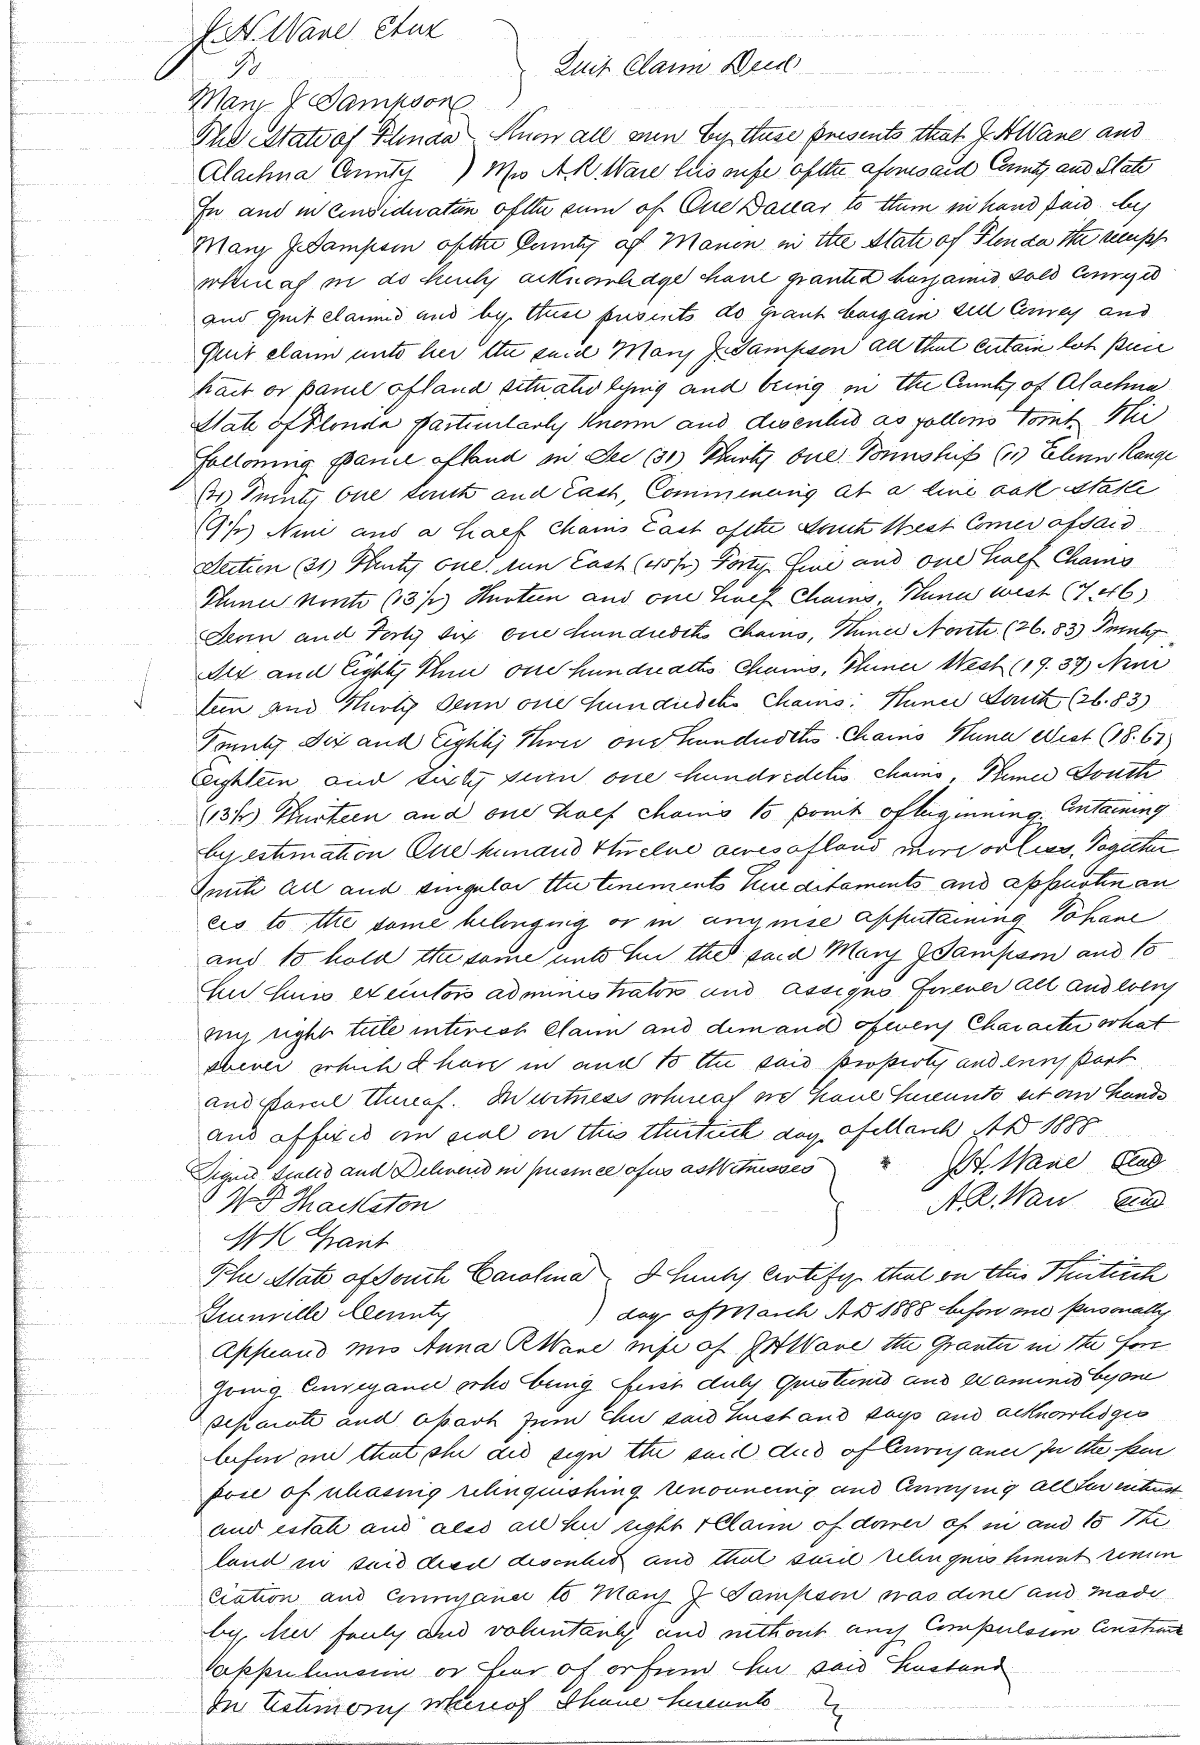 J. H. Wane etux
To
Quit Claim Deed
Mary J Sampson
The State of Florida Know all men by these presents that J. H Wane and
Alachua County ) Mrs A. R. Wane his wife of the aforesaid County and State
For and in consideration of the sum of One Dollar to them in hand paid by
Mary J. Sampson of the County of Marion in the State of Florida the receipt
whereof we do hereby acknowledge have granted bargained sold conveyed
and quit claimed and by these presents do grant bargain sell Convey and
Quit claim unto her the said Mary J. Sampson all that certain lot piece
tract or parcel of land situated lying and being in the County of Alachua
State of Florida particularly known and described as follows Towit The
following parcel of land in Sec (31) Thirty one Township (11) Eleven Range
(21) Twenty One South and East, Commencing at a live oak stake
(9½) Nine and a half chains East of the South West Corner of said
Section (31) Thirty one. run East (45½) Forty five and one half Chains
Thence North (13½) Thirteen and one half Chains, Thence west (7.46)
Seven and Forty six one hundredths chains, Thence North (26.83) Twenty
Six and Eighty Three one hundredths Chains, Thence West (19.37) Nine
teen and Thirty Seven one hundredths Chains: Thence South (26.83)
Twenty Six and Eighty Three one hundredths Chains Thence West (18.67)
Eighteen and sixty seven one hundredths chains, Thence South
(13½) Thirteen and one half chains to point of beginning. Containing
by estimation One hunand & twelve acres of land more or less, Together
with all and singular the tenements hereditaments and appurtenan
ces to the same belonging or in anywise appertaining To have
and to hold the same unto her the said Mary J Sampson and to
her heirs executors administrators and assigns forever all and every
my right title interest claim and demand of every Character what
soever which I have in and to the said property and every part
and parcel thereof. In witness whereof we have hereunto set our hands
and affixed our seal on this thirtieth day of March AD 1888
Signed Sealed and Delivered in presence of us as Witnesses J. H. Wane Seal
W D Thackston A. R. Wane Seal
W K Grant
The State of South Carolina I hereby Certify that on this Thirtieth
Greenville County ) day of March AD 1888 before me personally
appeared Mrs Anna R Wane wife of J H Wane the Grantor in the fore
going Conveyance who being first duly Questioned and examined by me
separate and apart from her said husband says and acknowledges
before me that she did sign the said deed of Conveyance for the pur
pose of releasing relinquishing renouncing and Conveying all her interest
and estate and also all her right & Claim of dower of in and to the
land in said deed described and that said relinquishment renun
ciation and conveyance to Mary J Sampson was done and made
by her freely and voluntarily and without any Compulsion Constraint
apprehension or fear of or from her said husband
In testimony whereof I have hereunto